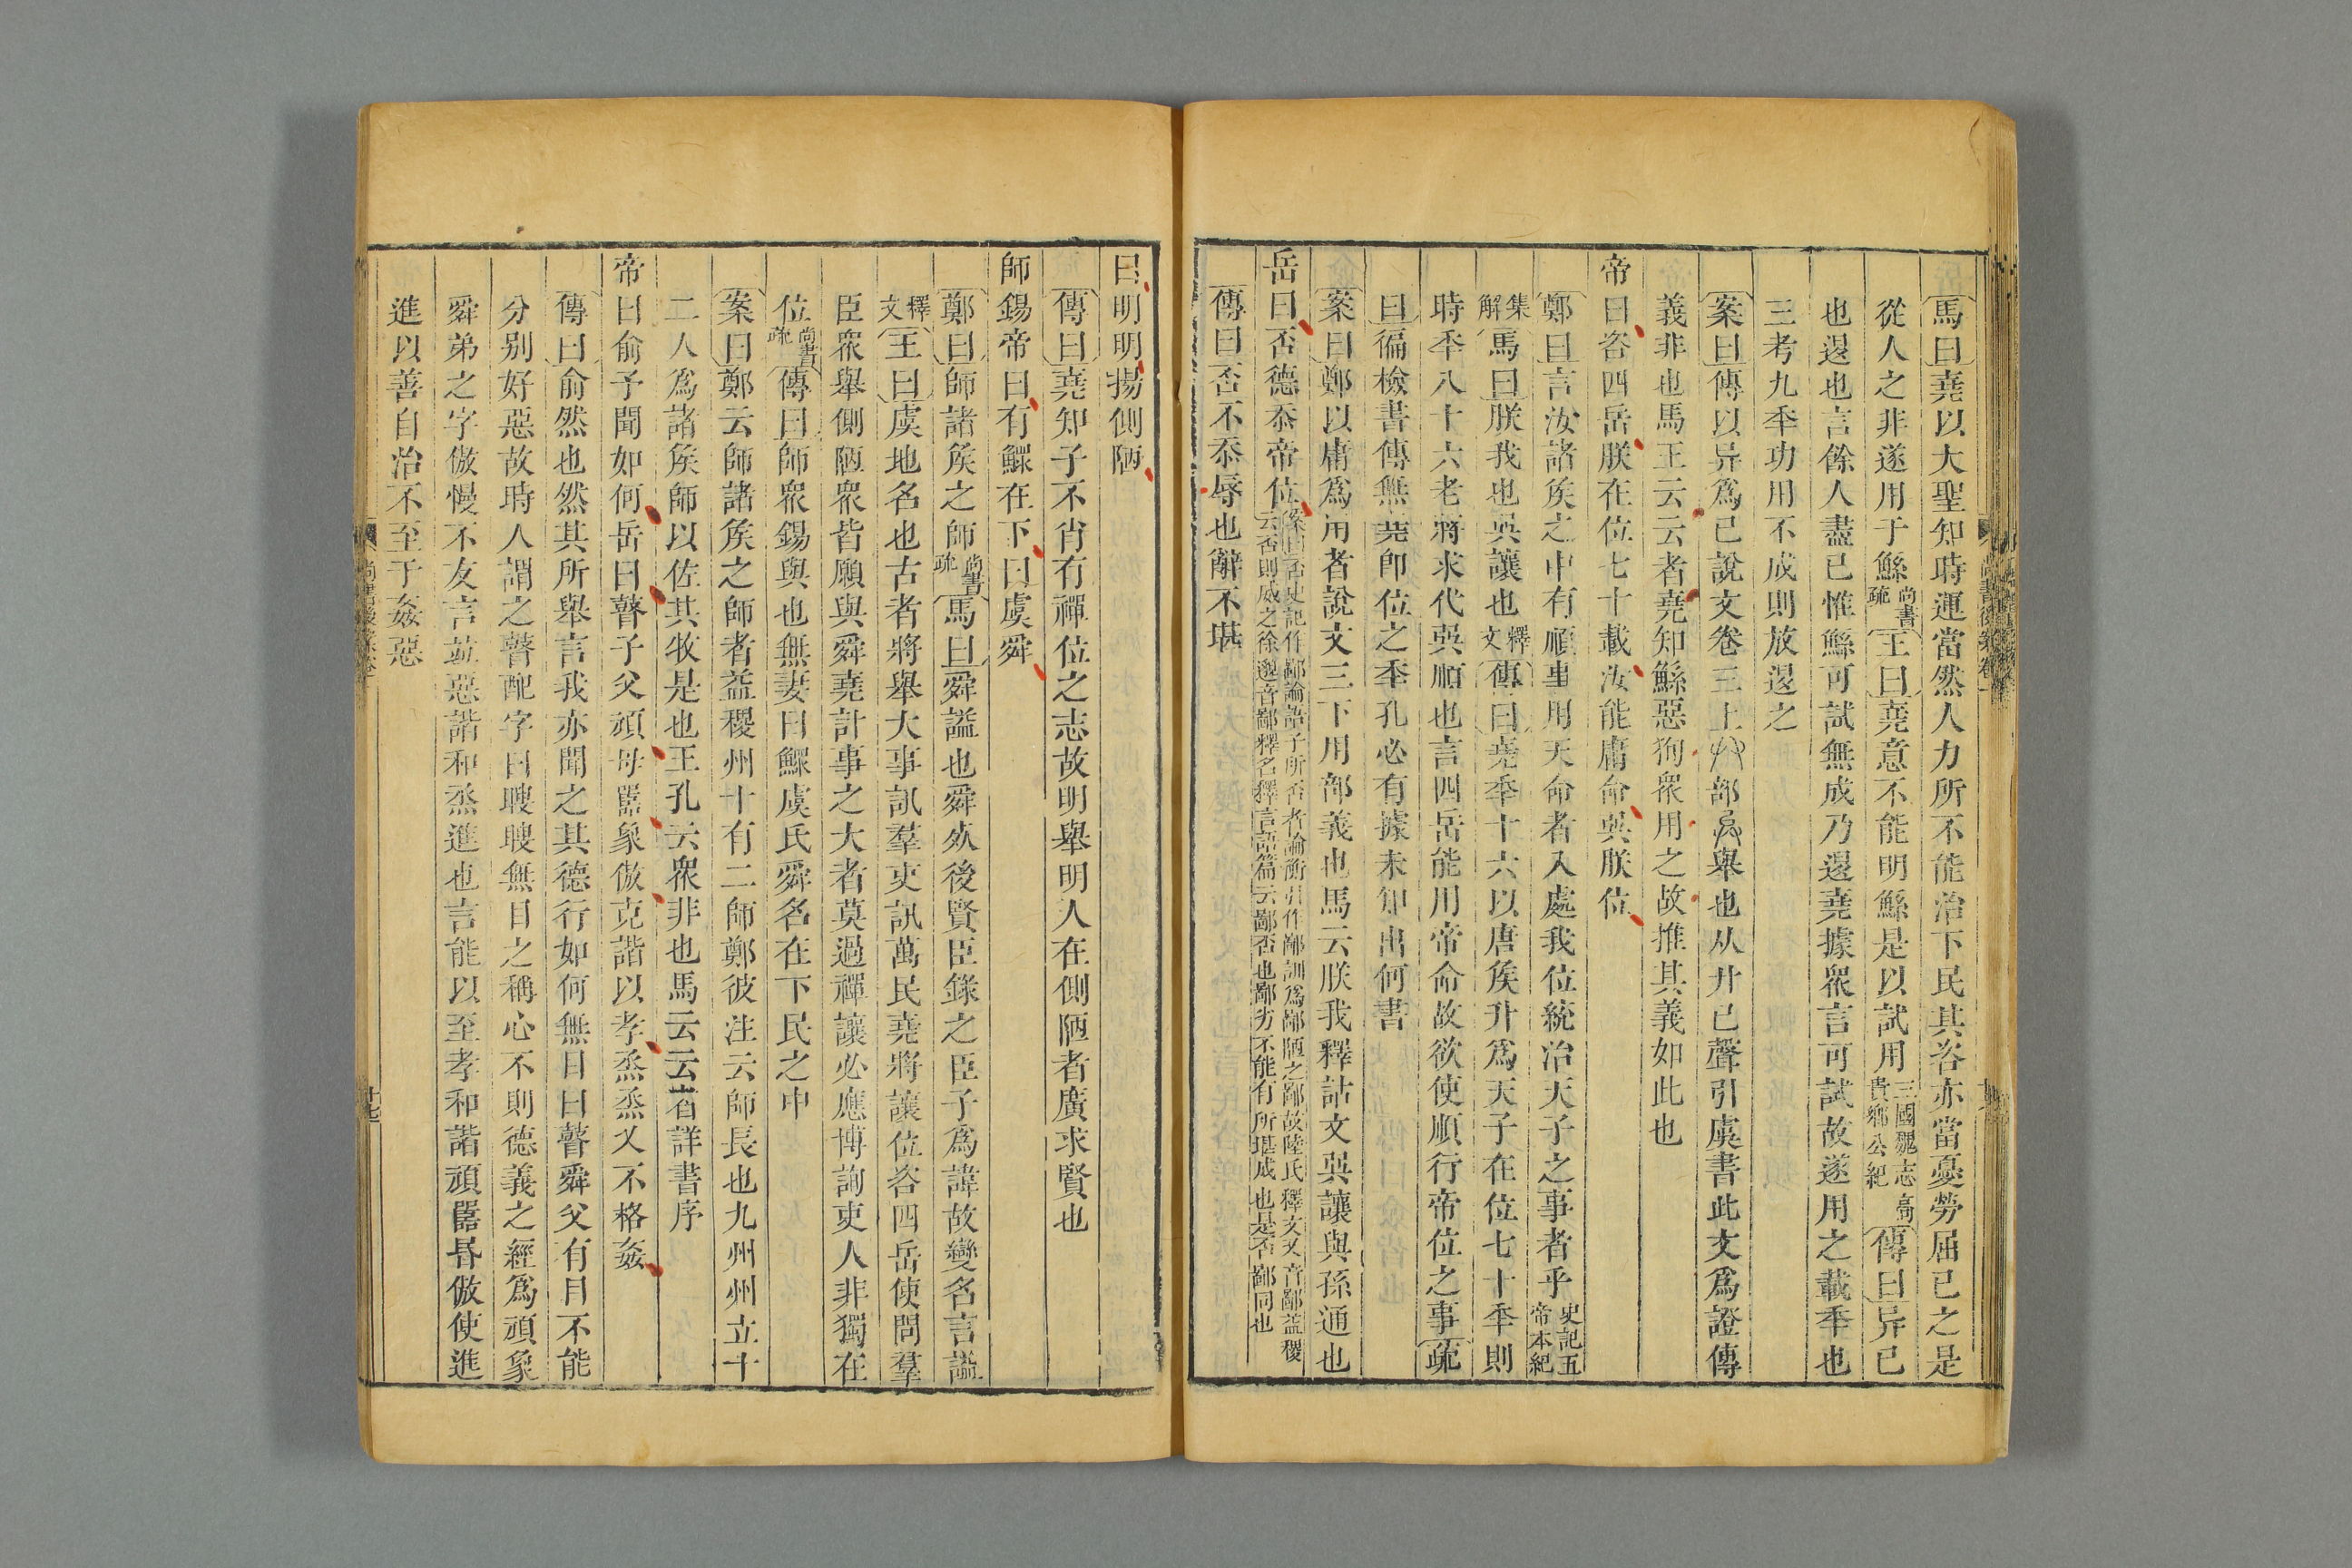 馬曰堯以大聖知時運當然人力所不能治下民其咨亦當憂勞屈已之是
從人之非遂用于鯀尚書疏王曰堯意不能明鯀是以試用三國魏志高貴鄉公紀傳曰异已
也退也言餘人盡已惟鯀可試無成乃退堯據衆言可試故遂用之載秊也
三考九秊功用不成則放退之
案曰傳以异爲已說文卷三上部舉也从廾已聲引虞書此文爲證傳
義非也馬王云云者堯知鯀惡狥衆用之故推其義如此也
帝曰咨四岳朕在位七十載汝能庸命㢲朕位
鄭曰言汝諸矦之中有順事用天命者入處我位統治天子之事者乎史記五帝本紀
集解馬曰朕我也㢲讓也釋文傳曰堯秊十六以唐矦升爲天子在位七十秊則
時秊八十六老將求代㢲順也言四岳能用帝命故欲使順行帝位之事疏
曰徧檢書傳無堯卽位之秊孔必有據未知出何書
案曰鄭以庸爲用者說文三下用部義也馬云朕我釋詁文㢲讓與孫通也
岳曰否德忝帝位案曰否史記作鄙論語予所否者論衡引作鄙訓爲鄙陋之鄙故陸氏釋文又音鄙益稷云否則威之徐邈音鄙釋名釋言語篇云鄙否也鄙劣不能有所堪成也是否鄙同也
傳曰否不忝辱也辭不堪
曰明明揚側陋
傳曰堯知子不肖有禪位之志故明舉明人在側陋者廣求賢也
師錫帝曰有鰥在下曰虞舜
鄭曰師諸矦之師尚書疏馬曰舜謚也舜歿後賢臣錄之臣子爲諱故變名言謚
釋文王曰虞地名也古者將舉大事訊羣吏訊萬民堯將讓位咨四岳使問羣
臣衆舉側陋衆皆願與舜堯計事之大者莫過禪讓必應博詢吏人非獨在
位尚書疏傳曰師衆錫與也無妻曰鰥虞氏舜名在下民之中
案曰鄭云師諸矦之師者益稷州十有二師鄭彼注云師長也九州州立十
二人爲諸矦師以佐其牧是也王孔云衆非也馬云云者詳書序
帝曰俞予聞如何岳曰瞽子父頑母嚚象傲克諧以孝烝烝乂不格姦
傳曰俞然也然其所舉言我亦聞之其德行如何無目曰瞽舜父有目不能
分别好惡故時人謂之瞽配字曰瞍瞍無目之稱心不則德義之經爲頑象
舜弟之字傲慢不友言竝惡諧和烝進也言能以至孝和諧頑嚚昬傲使進
進以善自治不至于姦惡